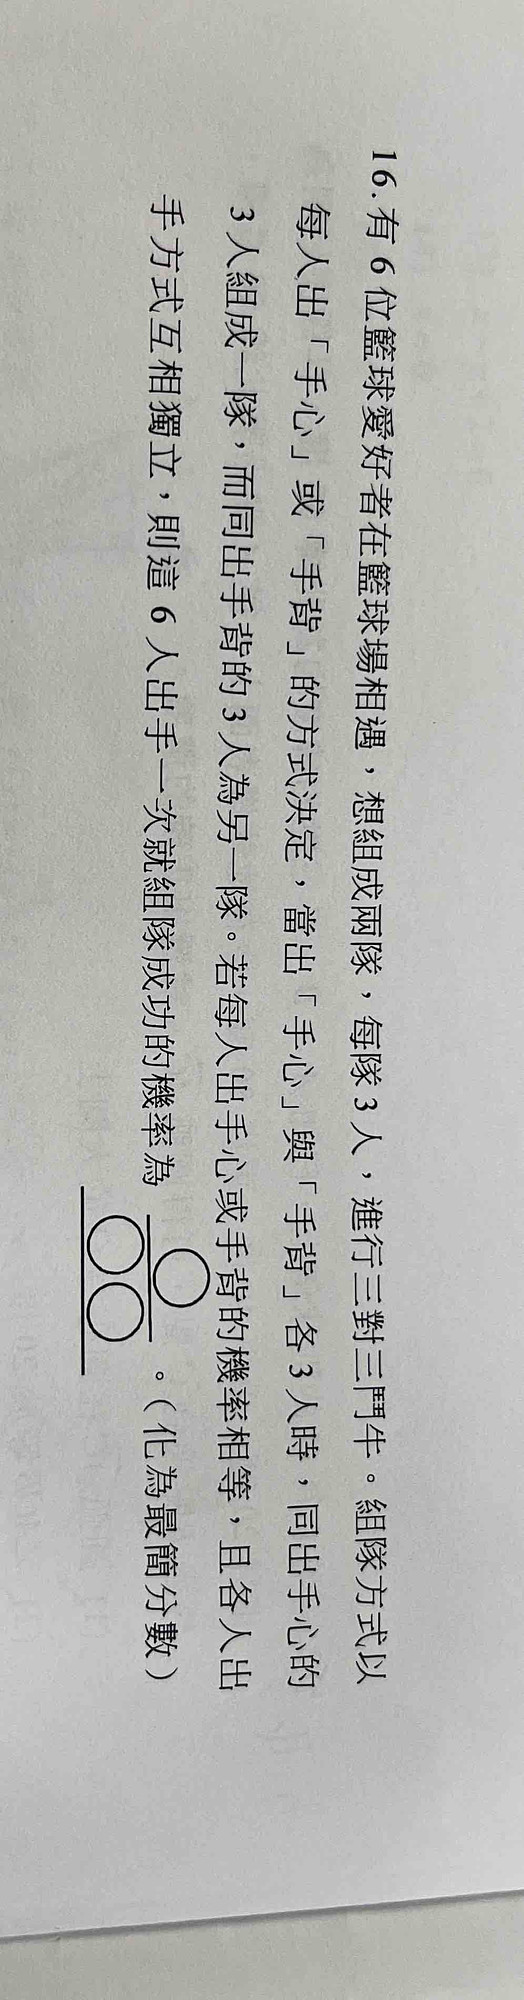 16.有6位籃球愛好者在籃球場相遇，想組成兩隊，每隊3人，進行三對三鬥牛。組隊方式以
每人出「手心」或「手背」的方式決定，當出「手心」與「手背」各3人時，同出手心的
3人組成一隊，而同出手背的3人為另一隊。若每人出手心或手背的機率相等，且各人出
手方式互相獨立，則這6人出手一次就組隊成功的機率為 ○/○○ 。（化為最簡分數）